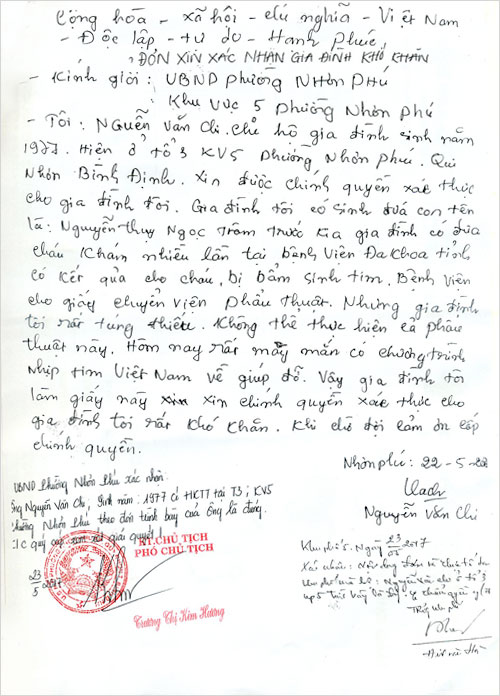 Cộng hòa - xã hội - chủ nghĩa - Việt Nam
- Độc lập - tự do - Hạnh Phúc,
ĐƠN XIN XÁC NHẬN GIA ĐÌNH KHÓ KHĂN
- Kính giởi : UBND Phường NHƠN PHÚ
Khu vực 5 phường Nhơn phú
- Tôi : Nguễn Văn Chi. Chủ hộ gia đình sinh năm
1977. Hiện ở tổ 3 KV5 phường Nhơn Phú. Qui
Nhơn Bình Định. Xin được chính quyền xác thực
cho gia đình tôi. Gia đình tôi có sinh đuá con tên
là: Nguyễn thuỵ Ngọc Trâm trước kia gia đình có đưa
cháu khám nhiều lần tại bệnh Viện Đa khoa tỉnh
có kết quả cho cháu, bị bẩm sinh tim. Bệnh Viện
cho giấy chuyển viện phẩu thuật. Nhưng gia đình
tôi rất tung thiếu. Không thể thực hiện ca phẩu
thuật này. Hôm nay rất mây mắn có chương trình
Nhịp tim Việt Nam về giúp đỡ. Vậy gia đình tôi
làm giấy này xin chính quyền xác thực cho
gia đình tôi rất khó khăn. Khi chờ đợi cảm ơn cấp
chính quyền.
Nhơn phú: 22-5-20
Nguyễn Văn Chi
UBND phường Nhơn Phú xác nhận:
Ông Nguyễn Văn Chi, sinh năm: 1977 có HKTT tại T3, KV5
phường Nhơn Phú theo đơn trình bày của ông là đúng.
quý cấp xem xét giải quyết
23
5 2017
KT.CHỦ TỊCH
PHÓ CHỦ TỊCH
Trương Thị Kim Hương
Khu phố 5. Ngày 23/05/2017
Xác nhận: Nội dung
Nguyễn Văn Chi ở tổ 3